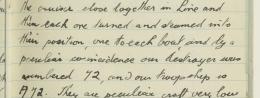 the cruiser close together in line and
then each one turned and steamed into
their position one to each boat and by a
peculiar coincidence our destroyer was
numbered 72, and our troopship is
A72. They are peculiar craft very low